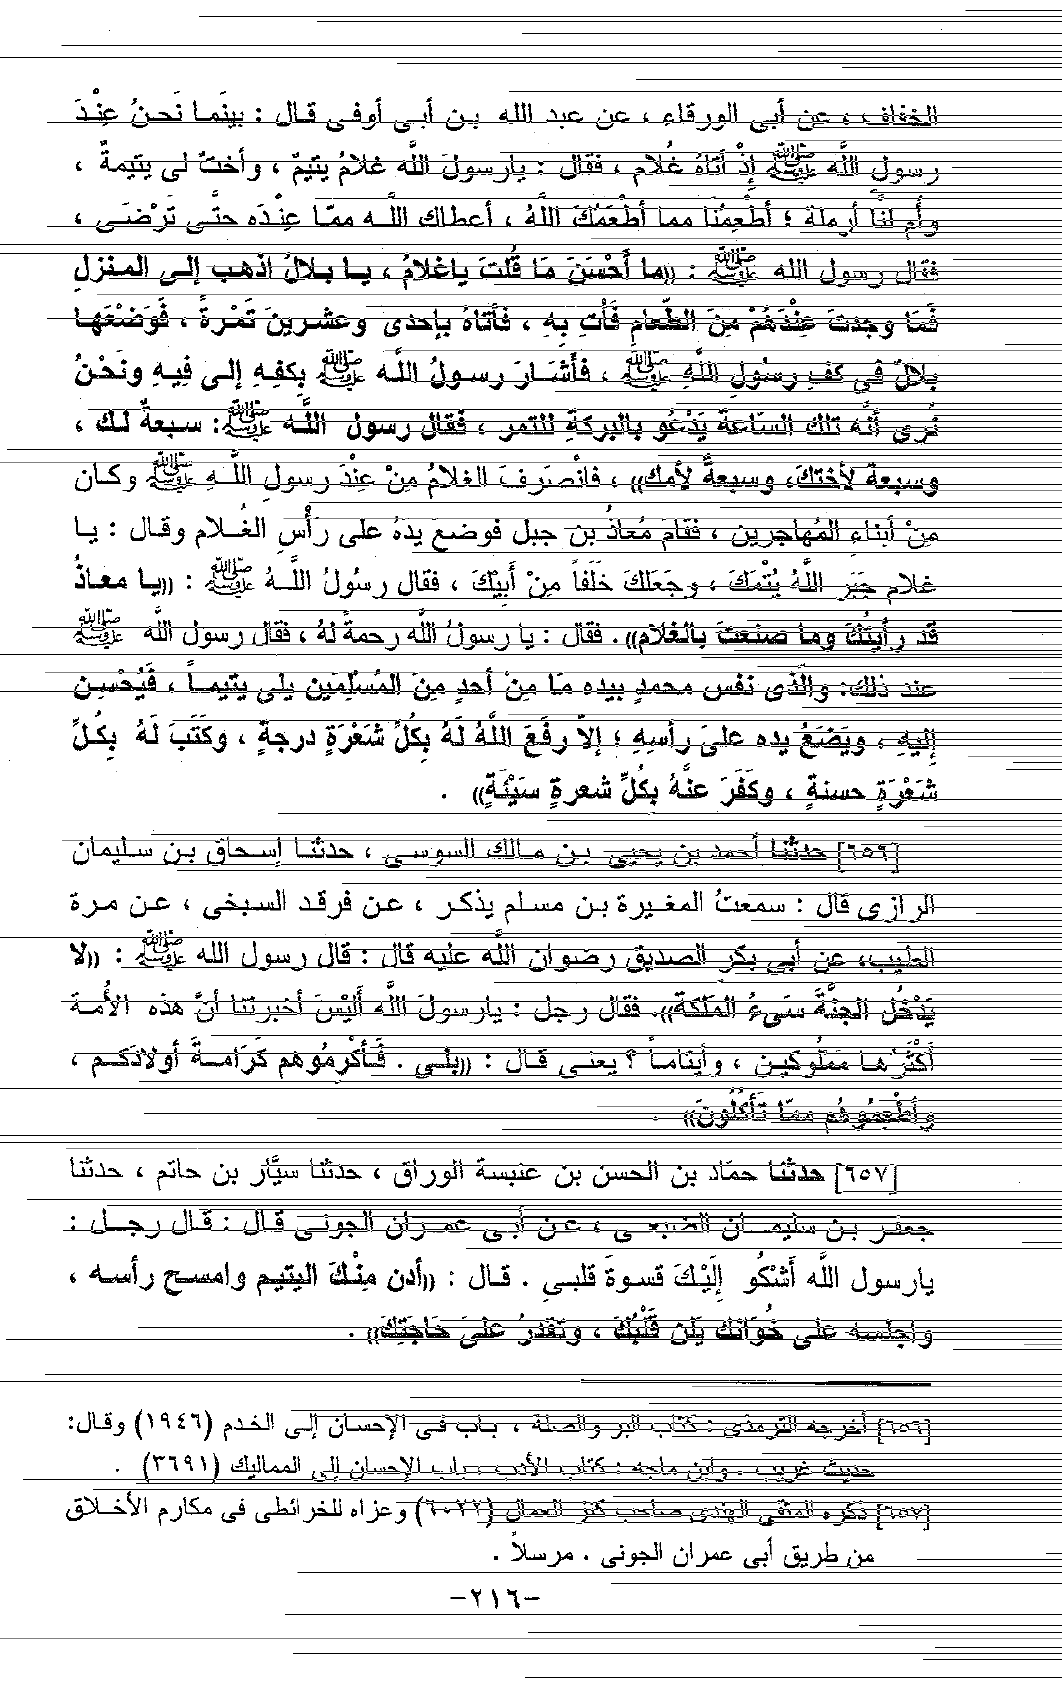 الخفاف ، عن أبى الورقاء ، عن عبد الله بن أبى أوفى قال : بينَما نَحنُ عِنْدَ
رسول اللَّه ﷺ إذْ أتاهُ غُلام ، فقال : يارسولَ اللَّه غلامُ يتيمٌ ، وأختٌ لى يتيمةٌ ،
وأم لنا أرملة ؛ أطْعِمْنَا مما أطْعَمَكَ اللَّهُ ، أعطاك اللَّه ممّا عِنْدَه حتَّى تَرْضَى ،
فقال رسول الله ﷺ : «ما أَحْسَنَ مَا قُلتَ ياغلامُ ، يا بلالُ اذهب إلى المنزلِ
فَمَا وجدتَ عِنْدَهُمْ مِنَ الطَّعامِ فَأْتِ بِهِ ، فأتاهُ بإحدى وعشرينَ تَمْرةً ، فَوَضَعَها
بلالٌ فى كف رسُولِ اللَّهِ ﷺ ، فأَشَارَ رسولُ اللَّه ﷺ بِكفهِ إلى فيهِ ونَحْنُ
نُرى أنَّه تلك السَّاعة يَدْعُو بالبركةِ للتمر ، فقال رسول اللَّه ﷺ: سبعةٌ لك ،
وسبعة لأختك، وسبعةٌ لأمك» ، فانْصَرفَ الغلامُ مِنْ عِنْدَ رسولِ اللَّهِ ﷺ وكان
مِنْ أبناءِ المُهاجرين ، فقامَ مُعاذُ بن جبل فوضعَ يدهُ على رَأْسِ الغُلام وقال : يا
غلام جَبَر اللَّهُ يُتْمَكَ ، وجَعَلكَ خَلَفاً مِنْ أَبِيْكَ ، فقال رسُولُ اللَّهُ ﷺ : «يا معاذُ
قد رأيتُكَ وما صنعتَ بالغلام» . فقال : يا رسولُ اللَّه رحمةً لهُ ، فقال رسول اللَّه ﷺ
عند ذلك: والَّذى نفس محمدٍ بيده مَا مِنْ أحدٍ مِنَ المُسْلِمَين يلى يتيماً ، فَيُحْسِن
إليهِ ، ويَضَعُ يده علىَ رأسِهِ ؛ إلاّ رفَعَ اللَّهُ لَهُ بِكُلِّ شَعْرَةٍ درجةٍ ، وكَتَبَ لَهُ بِكُلِّ
شَعْرَةٍ حسنةٍ ، وكَفَرَ عنْهُ بكُلِّ شعرةٍ سَيّئَةٍ» .
[٦٥٦] حدثنا أحمد بن يحيى بن مالك السوسى ، حدثنا إسحاق بن سليمان
الرازى قال : سمعتُ المغيرة بن مسلم يذكر ، عن فرقد السبخى ، عن مرة
الطيب، عن أبى بكر الصديق رضوان اللَّه عليه قال : قال رسول الله ﷺ : «لا
يَدْخُل الجنَّةَ سَىءُ المَلَكة». فقال رجل : يارسولَ اللَّه أَلَيْسَ أخبرتنا أنَّ هذه الأُمة
أكْثَرُها مَمْلُوكين ، وأيتاماً ؟ يعنى قال : «بلى . فَأَكْرِمُوهم كَرَامةَ أولادَكم ،
وأطْعِمُوهُم ممّا تَأكُلُونَ» .
[٦٥٧] حدثنا حمّاد بن الحسن بن عنبسة الوراق ، حدثنا سيَّار بن حاتم ، حدثنا
جعفر بن سليمان الضبعى ، عن أبى عمران الجونى قال : قال رجل :
يارسول اللَّه أشْكُو إلَيْكَ قسوةَ قلبىِ . قال : «أدن مِنْكَ اليتيم وامسح رأسه ،
واجلسه على خُوَانك يلن قَلْبُكَ ، وتقدرُ علىَ حَاجتِكَ» .
[٦٥٦] أخرجه الترمذى : كتاب البر والصلة ، باب فى الإحسان إلى الخدم (١٩٤٦) وقال:
حديث غريب . وابن ماجه : كتاب الأدب ، باب الإحسان إلى المماليك (٣٦٩١) .
[٦٥٧] ذكره المتقى الهندى صاحب كنز العمال (٦٠٢٢) وعزاه للخرائطى فى مكارم الأخلاق
من طريق أبى عمران الجونى . مرسلاً .
-٢١٦-